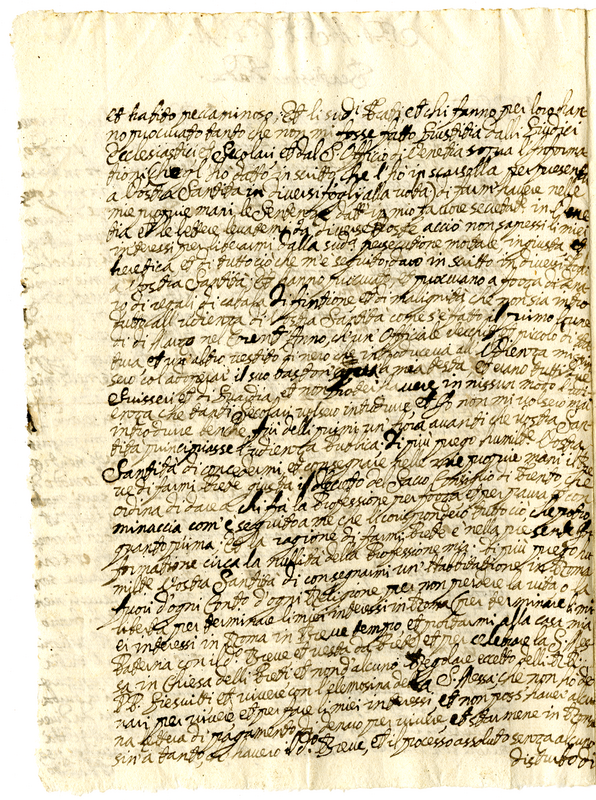 et habito peccaminoso, et li sudi Frati et chi fanno per loro han
no procurato tanto che non mi fosse fatto Giustitia dalli Giudici
Ecclesiastici et Secolari et dal S. Officio di Venetia sopra l'informa
tioni che n'ho fatto in scritto che l'ho in scarsolla per presenta
a Vostra Santità in diversi fogli alla volta di farmi havere nelle
mie proprie mani le Sentenze date in mio favore secretate in
tia et le lettere levatemi da diverse Poste acciò non sapessi li miei
interessi per liberarmi dalla sudª persecutione mortale ingiusta et
heretica et di tutto ciò che m'è seguito, in scritto in diversi fogli
a Vostra Santità, Et hanno procurato et procurano a forza di dana
ri di regali di cabala di fintione et di malignità che non sia intro
dutto all'udienza di Vostra Santità come è stato il primo Lune
di di Marzo nel Anno, ch'un Officiale vecchio piccolo di
tura, et un altro vestito di nero che introduceva all'Udienza mi
col suo bastone et erano tutti
Suizzeri et di Guardia et non mi havere in nissun modo l'udi
enza che tanti Secolari volse introdure, et non mi volse mai
introdure benche fui delli primi un'hora avanti che vostra San
tità principiasse l'udienza Publica; di più prego humilte Vostra
Santità di concedermi et consegnare nelle mie proprie mani il Bre
ve di farmi Prete giusta il decreto del Sacro Concilio di Trento che
ordina di dare a chi fa la Professione per forza et per paura con
minaccia com'è seguito a me che li corrispondevo tutto ciò che
quanto prima, et la ragione di farmi Prete è nella presente in
formatione circa la nullità della Professione mia: di più prego hu
milte Vostra Santità di consegnarmi un'Habitatione in Roma
fuori d'ogni Convento d'ogni Religione per non perdere la vita, la
libertà per terminare li miei interessi in Roma per terminare li mi
ei interessi in Roma in Breve tempo et portarmi alla casa mia
Paterna con il dº Breve et veste da Prete et per celebrare la S. Mes
sa in Chiesa delli Preti et non d'alcuno Regolare eccetto delli RR.
PP. Giesuitti et vivere con l'elemosina della S. Messa che non ho de
nari per vivere et per fare li miei interessi et non posso haver alcu
na lettera di pagamento di denaro per vivere, et starmene in Rom
sin'a tanto, ch'haverò il dº Breve, et il processo assoluto senza alcuno
disturbo di